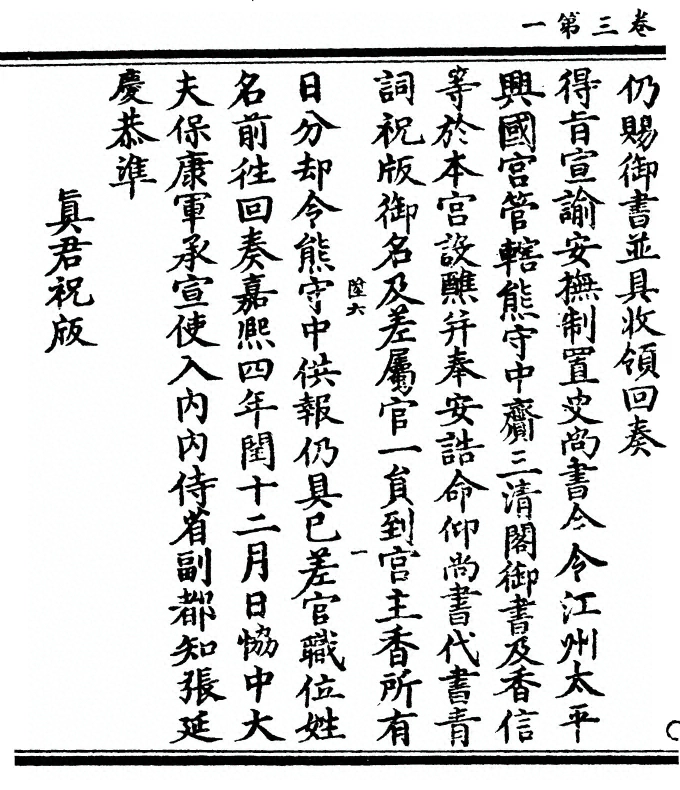 卷三第一
仍賜御書並具收領回奏
得旨宣諭安撫制置史尚書今令江州太平
興國宮管轄熊守中齎三清閣御書及香信
等於本宮設醮并奉安誥命仰尚書代書青
詞祝版御名及差屬官一員到宮主香所有
陸六
一
日分却令熊守中供報仍具已差官職位姓
名前徃回奏嘉熙四年閏十二月日恊中大
夫保康軍承宣使入內內侍省副都知張延
慶恭準
眞君祝版